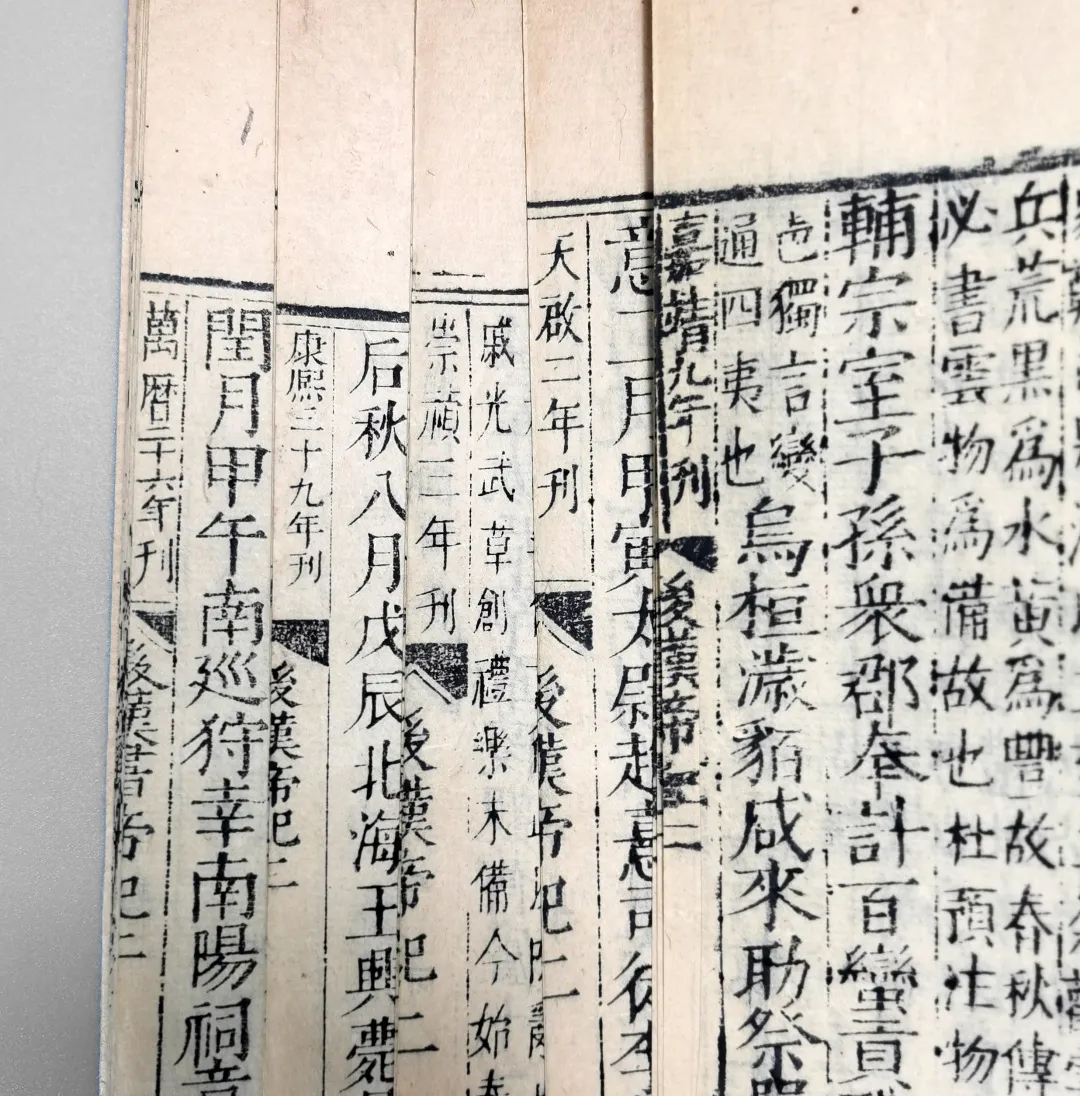 兵荒黑為水黃為豐故春秋傳
必書雲物為備故也杜預注物
輔宗室子孫衆郡奉計百蠻貢
色獨言變
通四夷也
烏桓濊貊咸來助祭
嘉靖九年刊 後漢帝紀二
憙二月甲寅太尉趙憙司徒李
天啟二年刊 後漢帝紀二
戚光武草創禮樂未備今始奏
崇禎三年刊 後漢帝紀二
后秋八月戊辰北海王興薨
康熙三十九年刊 後漢帝紀二
閏月甲午南巡狩幸南陽祠章
萬暦二十六年刊 後漢書帝紀二